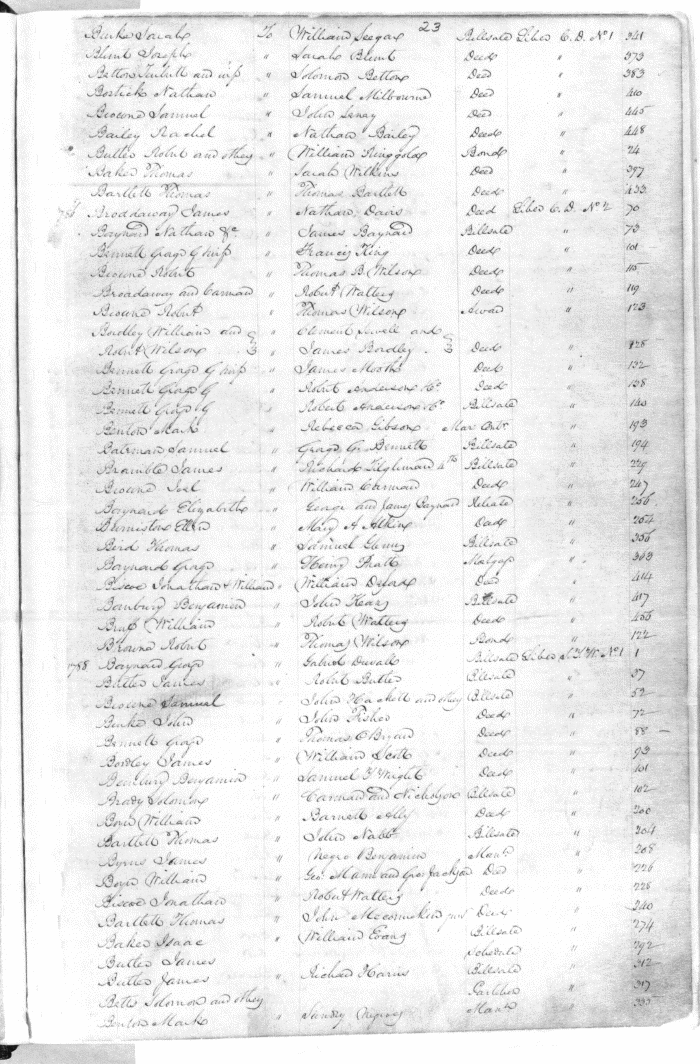 23
Burke Sarah To William Seegar Billsale Liber C. D. No 1 341
Blunt Joseph " Sarah Blunt Deed " 373
Betton Turbutt and wife " Solomon Betton Deed " 383
Bostick Nathan " Samuel Milbourne Deed " 410
Browne Samuel " John Deed " 445
Bailey Rachel " Nathan Bailey Deed " 448
Butler Robert and others " William Ringgold Bond " 24
Baker Thomas " Sarah Wilkins Deed " 397
Bartlett Thomas " Thomas Bartlett Deed " 433
Broadaway James " Nathan Davis Deed Liber C. D. No 2 70
Baynard Nathan &c " James Baynard Billsale " 73
Bennett George G wife " Francis King Deed " 101
Browne Robert " Thomas B. Wilson Deed " 115
Broadaway and Carman " Robert Walters Deed " 119
Browne Robert " Thomas Wilson Award " 123
Bordley William and " Clement Sewell and
Robert Wilson James Bordley Deed " 128
Bennett George G wife " James Deed " 132
Bennett George G " Robert Anderson &c Deed " 138
Bennett George G " Robert Anderson &c Billsale " 140
Benton Mark " Rebecca Gibson Mar " 193
Bateman Samuel " George G. Bennett Billsale " 194
Bramble James " Richard Tilghman 4th Billsale " 229
Browne Joel " William Carman Deed " 247
Baynard Elizabeth " George and James Baynard Release " 256
" Mary A Atkins Deed " 264
Bird Thomas " Samuel Billsale " 356
Baynard George " Henry Pratt Mortgage " 363
Biscoe Jonathan & William " William Deed " 414
Bernbury Benjamin " John Kear Billsale " 417
William " Robert Walters Deed " 456
Browne Robert " Thomas Wilson Bond " 122
1788 Baynard George " Gabriel Duvall Billsale Liber S. T. W. No 1 1
Butler James " Robert Butler Billsale " 37
Browne Samuel " John Hackett and others Billsale " 52
Burke John " John Fisher Deed " 72
Bennett George " Thomas O Bryan Deed " 88
Bordley James " William Scott Deed " 93
Bernbury Benjamin " Samuel T Wright Deed " 101
Brady Solomon " Carman and Nicholson Billsale " 102
Boyer William " Barnett Ally Deed " 200
Bartlett Thomas " John Nabb Billsale " 204
Byrns James " Negro Benjamin Manu " 208
Boyer William " Geo Mann and Geo Jackson Deed " 226
Biscoe Jonathan " Robert Walters Deed " 228
Bartlett Thomas " John Deed " 240
Baker Isaac " William Evans Billsale " 274
Butler James Schedule " 292
Butler James " Richard Harris Billsale " 312
Betts Solomon and others Partition " 317
Benton Mark " Sundry Negroes Manu " 333